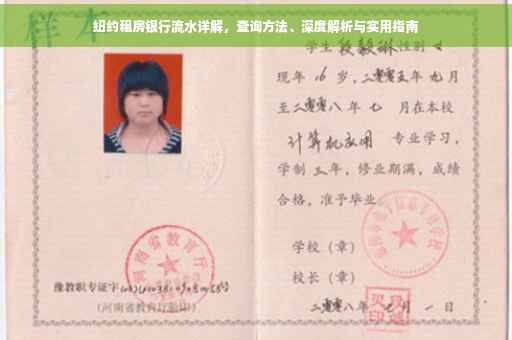 纽约租房银行流水详解，查询方法、深度解析与实用指南
样本
学生 段毅琳 性别 女
现年 16 岁，二零零五年 九月
至二零零八年 七 月在本校
计算机应用 专业学习，
学制 三年，修业期满，成绩
合格，准予毕业
学校（章）
校长（章）
豫教职专证字
(河南省教育厅验印)
二零零八年 七 月 一 日
河南省教育厅